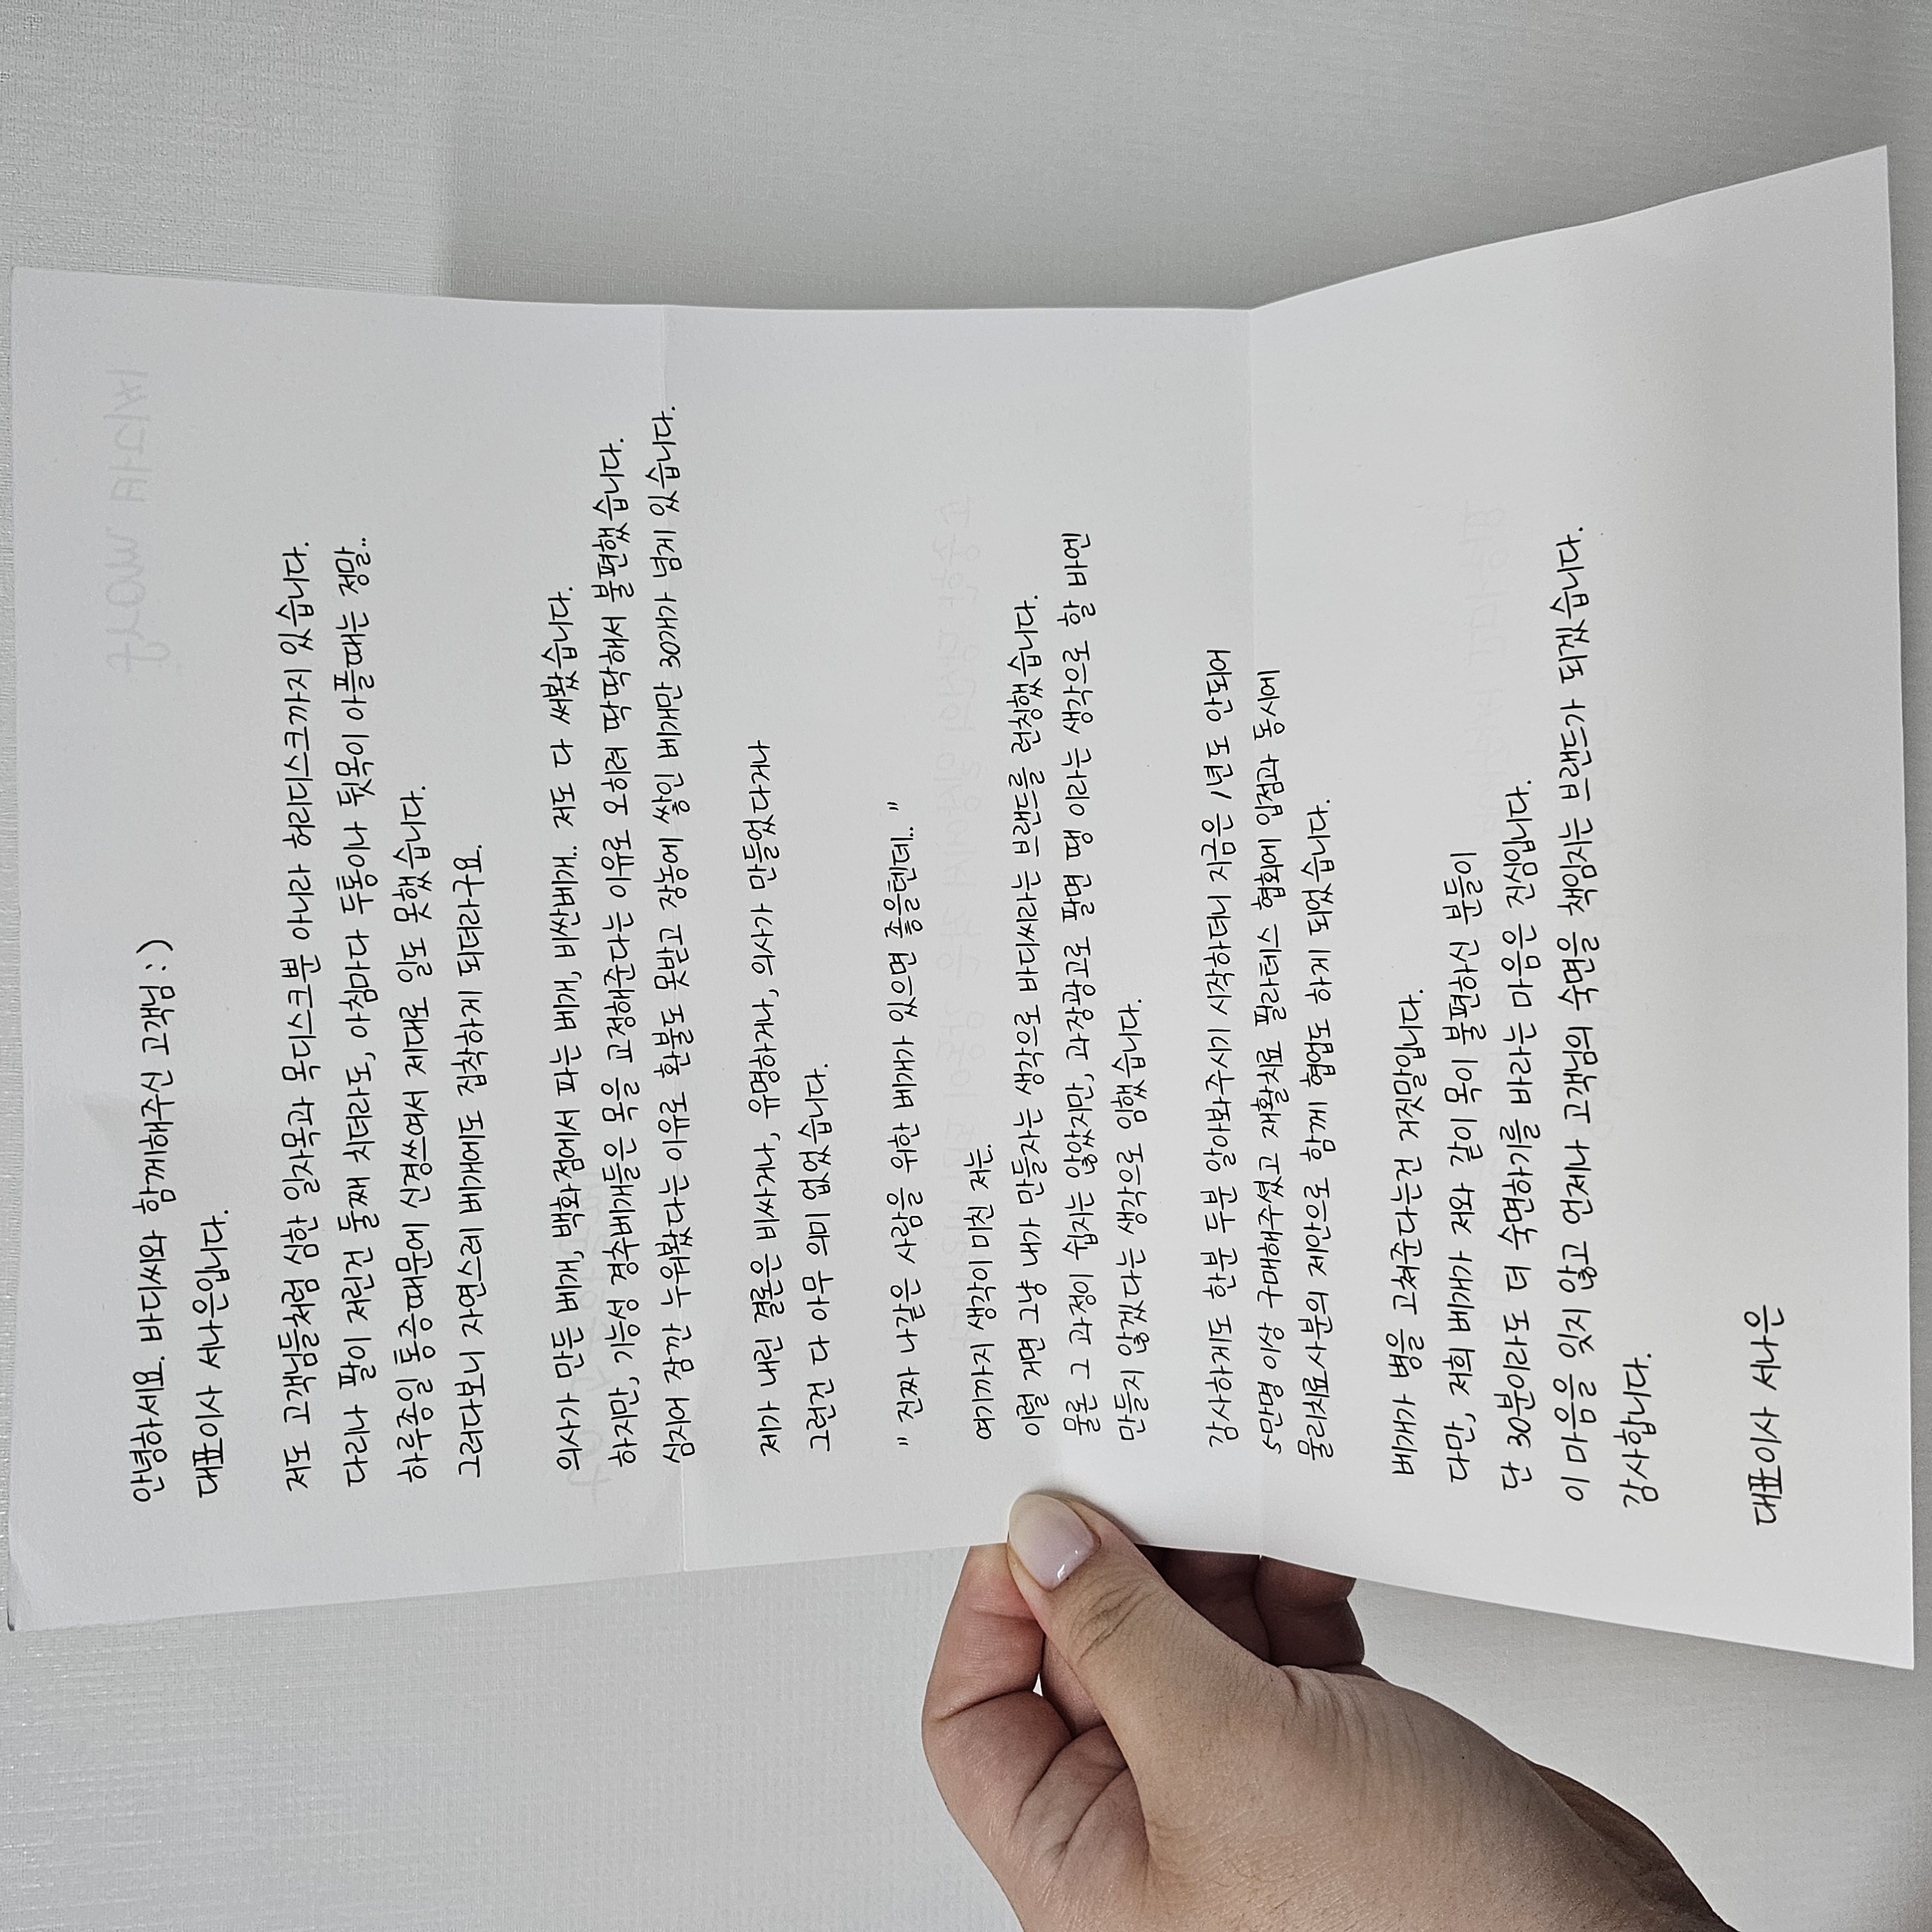 안녕하세요. 바디씨와 함께해주신 고객님:)
대표이사 서나은입니다.
저도 고객님들처럼 심한 일자목과 목디스크뿐 아니라 허리디스크까지 있습니다.
다리나 팔이 저린건 둘째 치더라도, 아침마다 두통이나 뒷목이 아플때는 정말..
하루종일 통증때문에 신경쓰여서 제대로 일도 못했습니다.
그러다보니 자연스레 베개에도 집착하게 되더라구요.
의사가 만든 베개, 백화점에서 파는 베개, 비싼베개.. 저도 다 써봤습니다.
하지만, 기능성 경추베개들은 목을 교정해준다는 이유로 오히려 딱딱해서 불편했습니다.
심지어 잠깐 누워봤다는 이유로 환불도 못받고 장농에 쌓인 베개만 30개가 넘게 있습니다.
제가 내린 결론은 비싸거나, 유명하거나, 의사가 만들었다거나
그런건 다 아무 의미 없었습니다.
" 진짜 나같은 사람을 위한 베개가 있으면 좋을텐데.. "
여기까지 생각이 미친 저는.
이럴 거면 그냥 내가 만들자는 생각으로 바디씨라는 브랜드를 런칭했습니다.
물론 그 과정이 쉽지는 않았지만, 과장광고로 팔면 땡 이라는 생각으로 할 바엔
만들지 않겠다는 생각으로 임했습니다.
감사하게도 한분 두분 알아봐주시기 시작하더니 지금은 1년도 안되어
5만명 이상 구매해주셨고 재활치료 필라테스 협회에 입점과 동시에
물리치료사분의 제안으로 함께 협업도 하게 되었습니다.
베개가 병을 고쳐준다는건 거짓말입니다.
다만, 저희 베개가 저와 같이 목이 불편하신 분들이
단 30분이라도 더 숙면하기를 바라는 마음은 진심입니다.
이 마음을 잊지 않고 언제나 고객님의 숙면을 책임지는 브랜드가 되겠습니다.
감사합니다.
대표이사 서나은